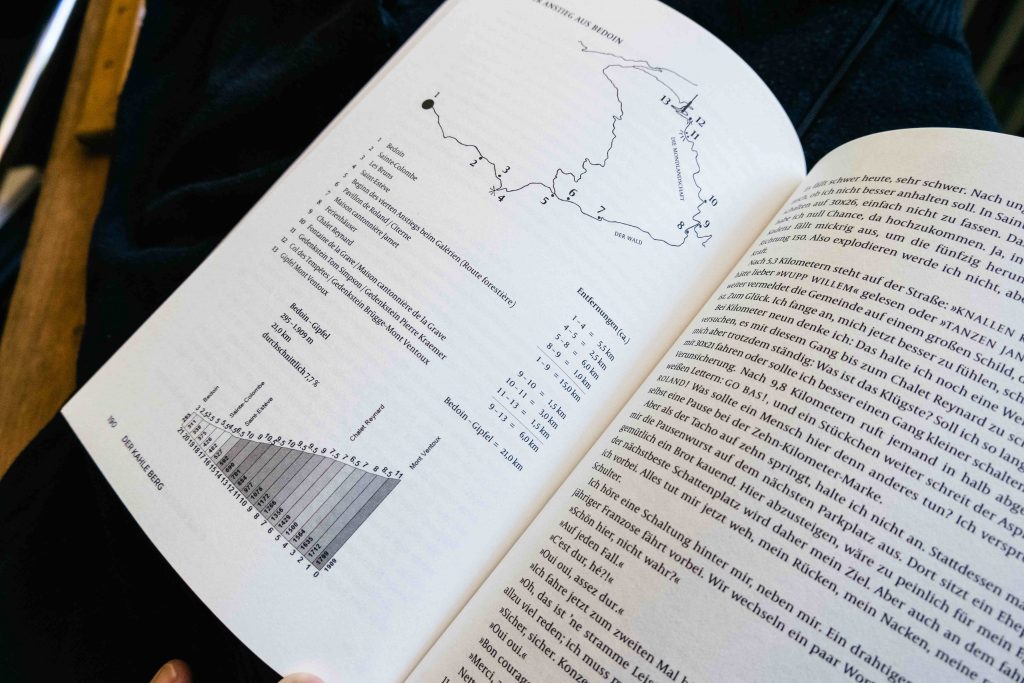 DER ANSTIEG AUS BEDOIN
1
2
3
4
5
6
7
8
9
10
11
12
13
DIE MONDLANDSCHAFT
DER WALD
1 Bedoin
2 Sainte-Colombe
3 Les Bruns
4 Saint-Estève
5 Beginn des vierten Anstiegs beim Galérien (Route forestière)
6 Pavillon de Roland / Citerne
7 Maison cantonnière Jamet
8 Ferienhäuser
9 Chalet Reynard
10 Fontaine de la Grave / Maison cantonnière de la Grave
11 Gedenkstein Tom Simpson / Gedenkstein Pierre Kraemer
12 Col des Tempêtes / Gedenkstein Brügge-Mont Ventoux
13 Gipfel Mont Ventoux
Entfernungen (ca.)
1 - 4 = 5,5 km
4 - 5 = 2,5 km
5 - 8 = 6,0 km
8 - 9 = 1,0 km
1 - 9 = 15,0 km
9 - 10 = 1,5 km
10 - 11 = 3,0 km
11 - 13 = 1,5 km
9 - 13 = 6,0 km
Bedoin - Gipfel = 21,0 km
Bedoin - Gipfel
295 - 1.909 m
21,0 km
durchschnittlich 7,7 %
Bedoin
Sainte-Colombe
Saint-Estève
Chalet Reynard
Mont Ventoux
190 DER KAHLE BERG
fällt schwer heute, sehr schwer. Nach un
ich nicht besser anhalten soll. In Sain
auf 30x26, einfach nicht zu fassen. Da
ich null Chance, da hochzukommen. Ja, in
fällt mickrig aus, um die fünfzig herun
Richtung 150. Also explodieren werde ich nicht, abe
Kraft.
Nach 5,3 Kilometern steht auf der Straße: »KNALLEN J
hätte lieber »WUPP WILLEM« gelesen oder »TANZEN JAN
weiter vermeldet die Gemeinde auf einem großen Schild, d
ist. Zum Glück. Ich fange an, mich jetzt besser zu fühlen, sch
Bei Kilometer neun denke ich: Das halte ich noch eine We
versuchen, es mit diesem Gang bis zum Chalet Reynard zu sc
mich aber trotzdem ständig: Was ist das Klügste? Soll ich so lang
mit 30x21 fahren oder sollte ich besser einen Gang kleiner schalten
Verunsicherung. Nach 9,8 Kilometern ruft jemand in halb abge
weißen Lettern: GO BAS!, und ein Stückchen weiter schreit der Asp
ROLAND! Was sollte ein Mensch hier denn anderes tun? Ich verspr
selbst eine Pause bei der Zehn-Kilometer-Marke.
Aber als der Tacho auf zehn springt, halte ich nicht an. Stattdessen ma
mir die Pausenwurst auf dem nächsten Parkplatz aus. Dort sitzt ein Ehep
gemütlich ein Brot kauend. Hier abzusteigen, wäre zu peinlich für mein E
der nächstbeste Schattenplatz wird daher mein Ziel. Aber auch an dem fahr
ich vorbei. Alles tut mir jetzt weh, mein Rücken, mein Nacken, meine
Schulter.
Ich höre eine Schaltung hinter mir, neben mir. Ein drahtiger
jähriger Franzose fährt vorbei. Wir wechseln ein paar Wor
»Schön hier, nicht wahr?«
»Auf jeden Fall.«
»C'est dur, hé?!«
»Oui oui, assez dur.«
»Ich fahre jetzt zum zweiten Mal h
»Oh, das ist 'ne stramme Leis
allzu viel reden; ich muss
»Sicher, sicher. Konze
»Oui oui.«
»Bon courag
»Merci,
Nett